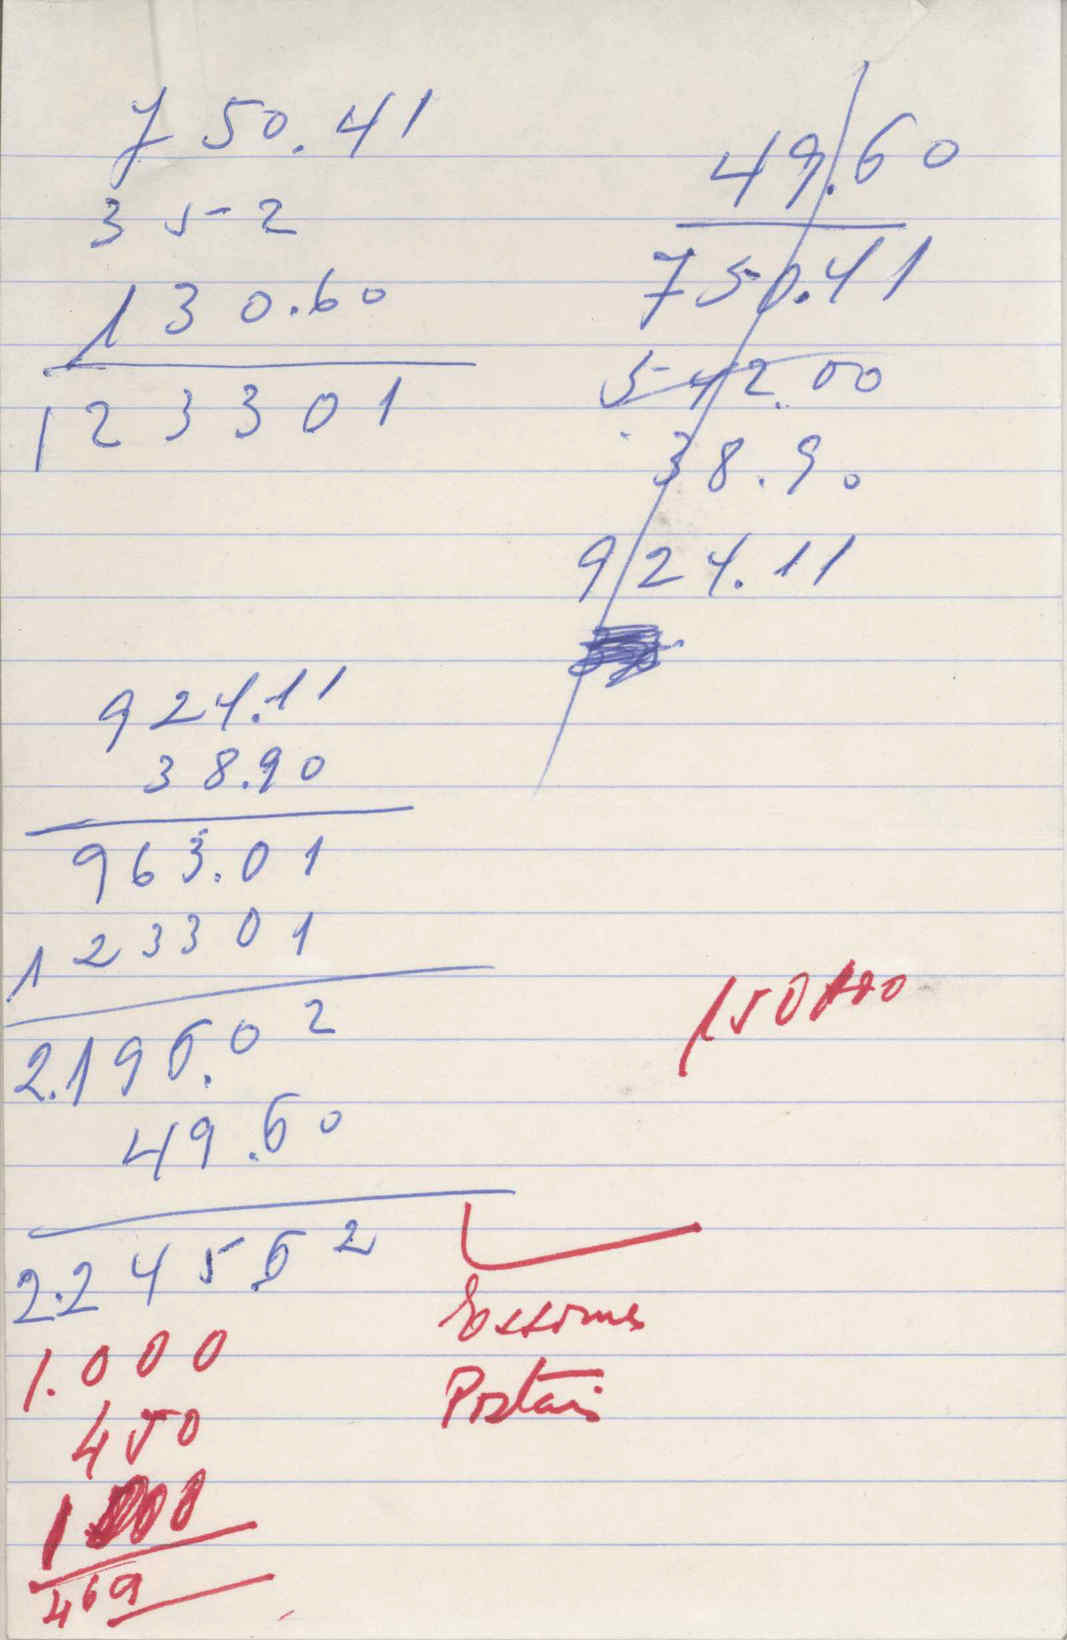 750.41
352
130.60
123301
49.60
750.41
542.00
38.90
924.11
924.11
38.90
963.01
123301
2.196.02
49.60
2.245.62
1.000
450
469
Postais